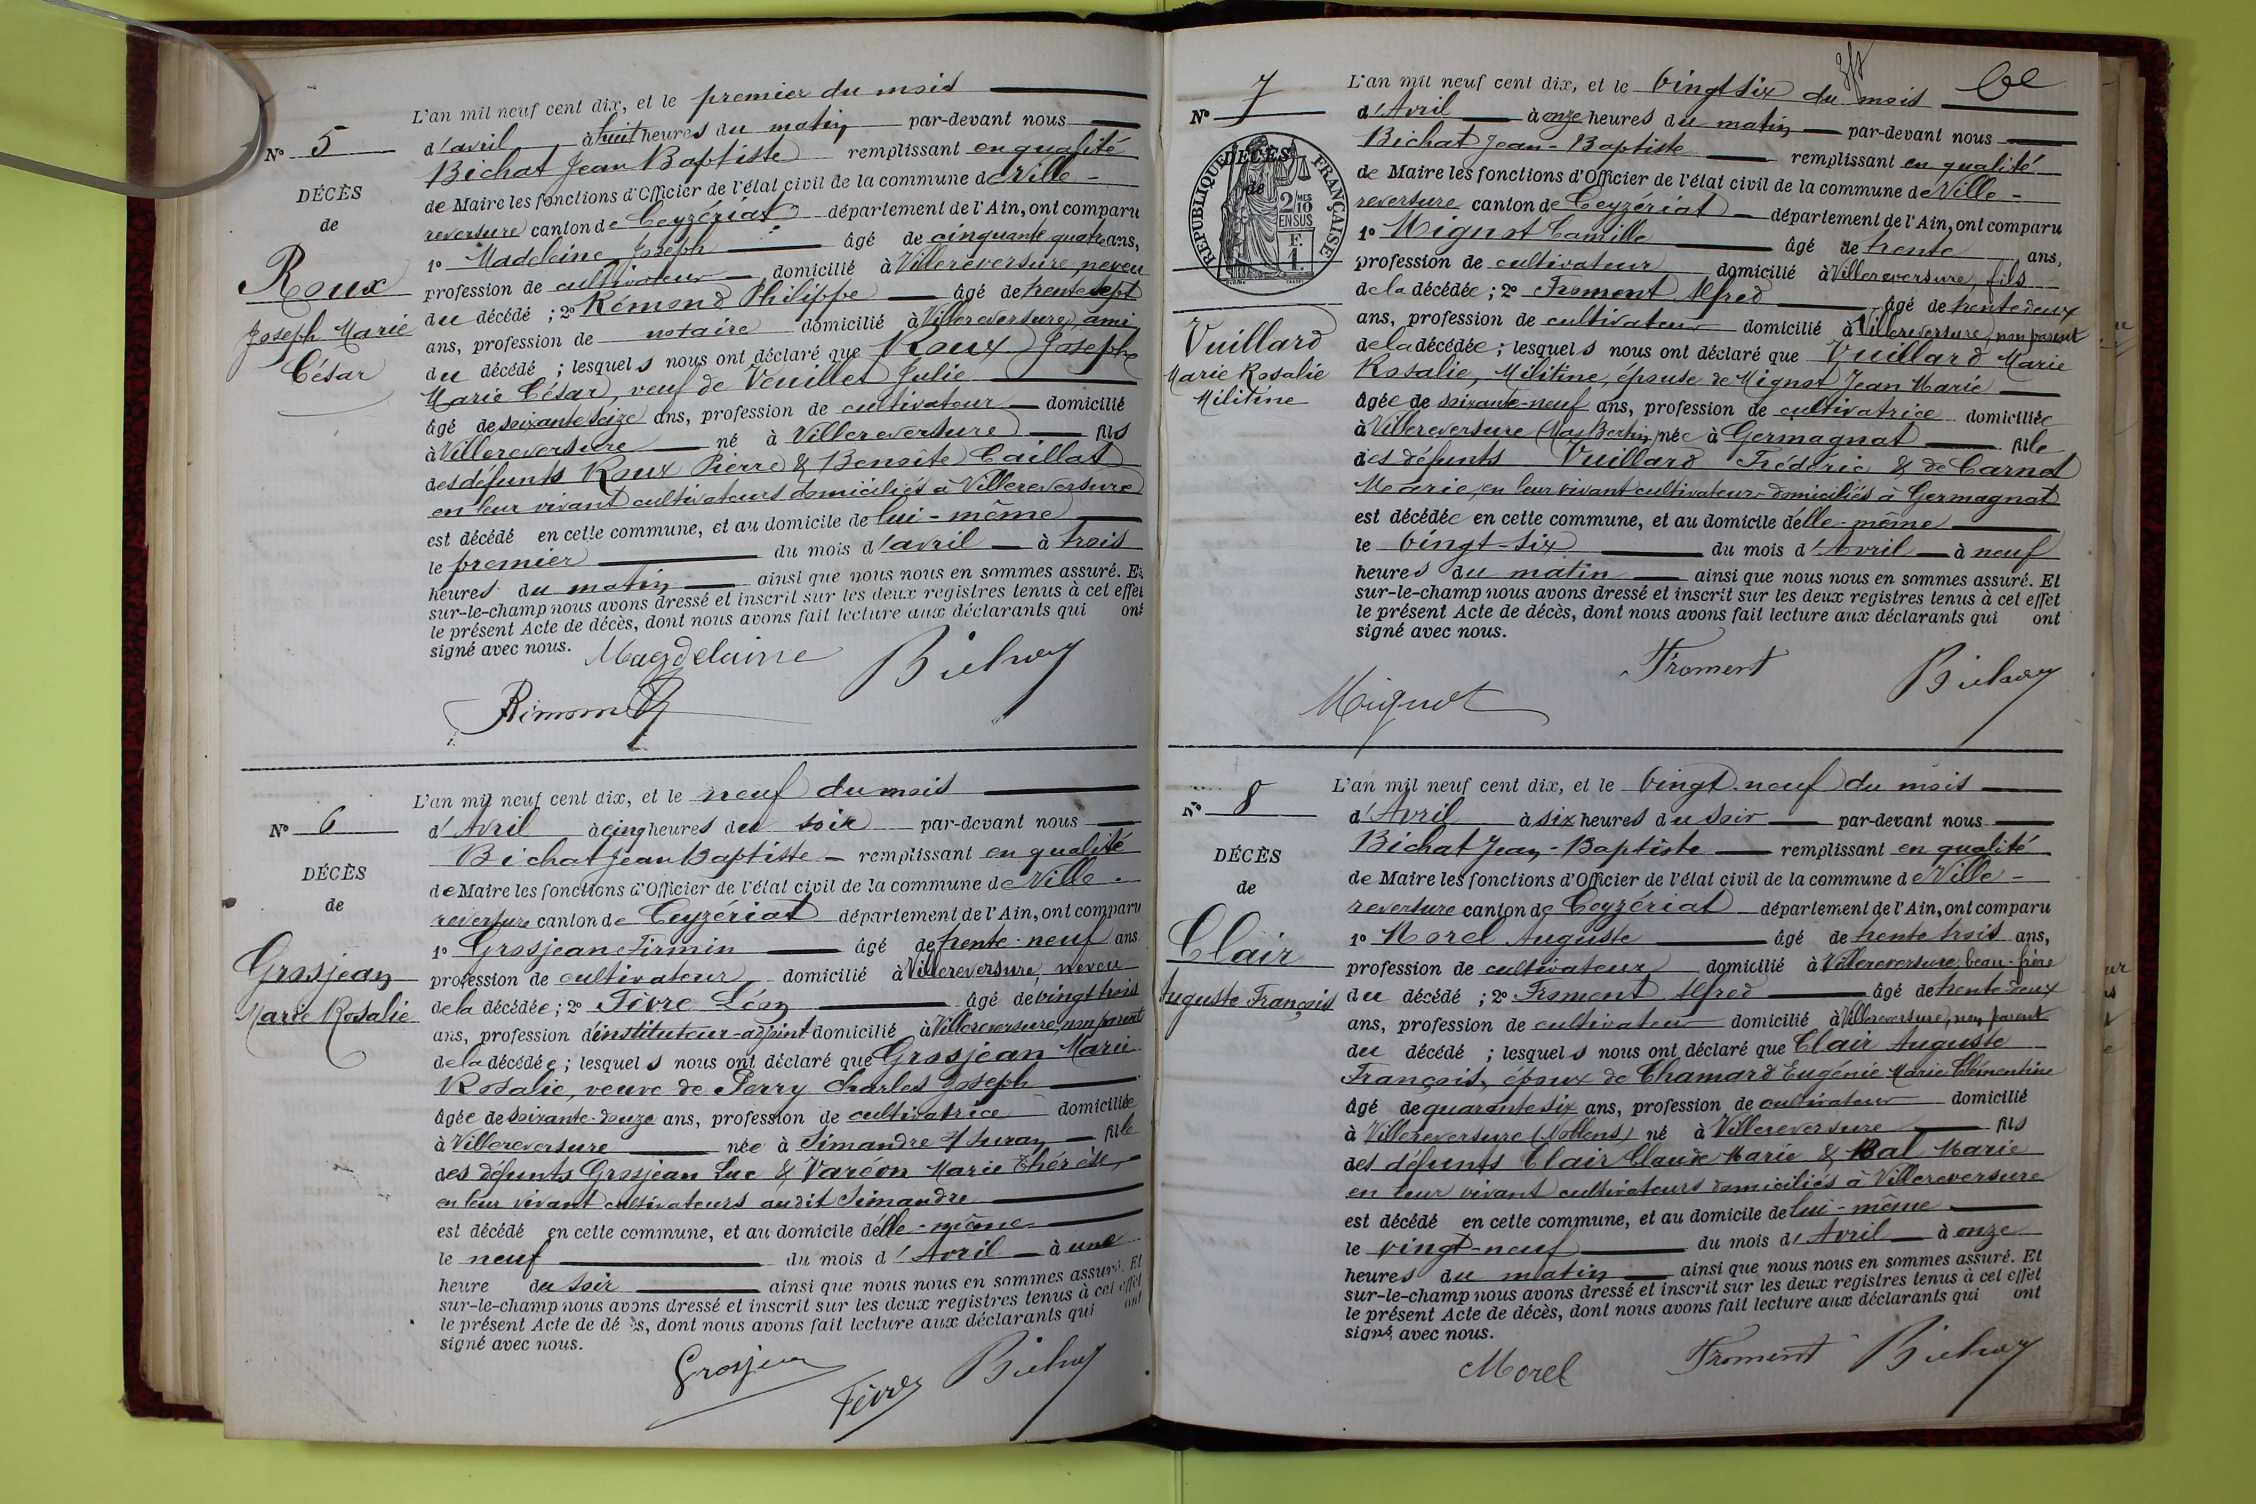 L'an mil neuf cent dix, et le premier du mois
N° 5
d'avril à huit heures du matin par-devant nous
Bichat Jean Baptiste remplissant en qualité
DÉCÈS
de Maire les fonctions d'Officier de l'état civil de la commune de Ville-
de
reversure canton de Ceyzériat département de l'Ain, ont comparu
1° Madeleine Joseph âgé de cinquante quatre ans,
Roux
profession de cultivateur domicilié à Villereversure, neveu
Joseph Marie
du décédé ; 2° Rémond Philippe âgé de trente sept
César
ans, profession de notaire domicilié à Villereversure, ami
du décédé ; lesquels nous ont déclaré que Roux Joseph
Marie César, veuf de Veuillet Julie
âgé de soixante seize ans, profession de cultivateur domicilié
à Villereversure né à Villereversure fils
des défunts Roux Pierre & Benoîte Caillat
en leur vivant cultivateurs domiciliés à Villereversure
est décédé en cette commune, et au domicile de lui-même
le premier du mois d'avril à trois
heures du matin ainsi que nous nous en sommes assuré. Et
sur-le-champ nous avons dressé et inscrit sur les deux registres tenus à cet effet
le présent Acte de décès, dont nous avons fait lecture aux déclarants qui ont
signé avec nous.
Magdelaine
Bichat
Rémond
L'an mil neuf cent dix, et le neuf du mois
N° 6
d'Avril à cinq heures du soir par-devant nous
Bichat Jean Baptiste remplissant en qualité
DÉCÈS
de Maire les fonctions d'Officier de l'état civil de la commune de Ville-
de
reversure canton de Ceyzériat département de l'Ain, ont comparu
1° Grosjean Firmin âgé de trente-neuf ans
Grosjean
profession de cultivateur domicilié à Villereversure, neveu
Marie Rosalie
de la décédée ; 2° Fèvre Léon âgé de vingt trois
ans, profession d'instituteur-adjoint domicilié à Villereversure, non parent
de la décédée ; lesquels nous ont déclaré que Grosjean Marie
Rosalie, veuve de Perry Charles Joseph
âgée de soixante-douze ans, profession de cultivatrice domiciliée
à Villereversure née à Simandre s/ Suran fille
des défunts Grosjean Luc & Varéon Marie Thérèse,
en leur vivant cultivateurs audit Simandre
est décédé en cette commune, et au domicile d'elle-même
le neuf du mois d'Avril à une
heure du soir ainsi que nous nous en sommes assuré. Et
sur-le-champ nous avons dressé et inscrit sur les deux registres tenus à cet effet
le présent Acte de décès, dont nous avons fait lecture aux déclarants qui ont
signé avec nous.
Grosjean
Fèvre
Bichat
L'an mil neuf cent dix, et le vingt six du mois
N° 7
d'Avril à onze heures du matin par-devant nous
Bichat Jean-Baptiste remplissant en qualité
DÉCÈS
de
RÉPUBLIQUE FRANÇAISE
2 MES 10 EN SUS
F. 1.
de Maire les fonctions d'Officier de l'état civil de la commune de Ville-
reversure canton de Ceyzeriat département de l'Ain, ont comparu
1° Mignot Camille âgé de trente ans,
profession de cultivateur domicilié à Villereversure, fils
de la décédée ; 2° Froment Alfred âgé de trente deux
Vuillard
ans, profession de cultivateur domicilié à Villereversure, non parent
de la décédée ; lesquels nous ont déclaré que Vuillard Marie
Marie Rosalie
Rosalie, Militine, épouse de Mignot Jean Marie
Militine
âgée de soixante-neuf ans, profession de cultivatrice domiciliée
à Villereversure née à Germagnat fille
des défunts Vuillard Frédéric & de Carnet
Marie, en leur vivant cultivateurs domiciliés à Germagnat
est décédée en cette commune, et au domicile d'elle-même
le vingt-six du mois d'Avril à neuf
heures du matin ainsi que nous nous en sommes assuré. Et
sur-le-champ nous avons dressé et inscrit sur les deux registres tenus à cet effet
le présent Acte de décès, dont nous avons fait lecture aux déclarants qui ont
signé avec nous.
Froment
Bichat
Mignot
L'an mil neuf cent dix, et le vingt neuf du mois
N° 8
d'Avril à six heures du soir par-devant nous
Bichat Jean-Baptiste remplissant en qualité
DÉCÈS
de Maire les fonctions d'Officier de l'état civil de la commune de Ville-
de
reversure canton de Ceyzériat département de l'Ain, ont comparu
1° Morel Auguste âgé de trente trois ans,
Clair
profession de cultivateur domicilié à Villereversure, beau-frère
Auguste François
du décédé ; 2° Froment Alfred âgé de trente-deux
ans, profession de cultivateur domicilié à Villereversure, non parent
du décédé ; lesquels nous ont déclaré que Clair Auguste
François, époux de Chamard Eugénie Marie Clémentine
âgé de quarante six ans, profession de cultivateur domicilié
à Villereversure (Nollens) né à Villereversure fils
des défunts Clair Claude Marie & Bal Marie
en leur vivant cultivateurs domiciliés à Villereversure
est décédé en cette commune, et au domicile de lui-même
le vingt-neuf du mois d'Avril à onze
heures du matin ainsi que nous nous en sommes assuré. Et
sur-le-champ nous avons dressé et inscrit sur les deux registres tenus à cet effet
le présent Acte de décès, dont nous avons fait lecture aux déclarants qui ont
signé avec nous.
Morel
Froment
Bichat